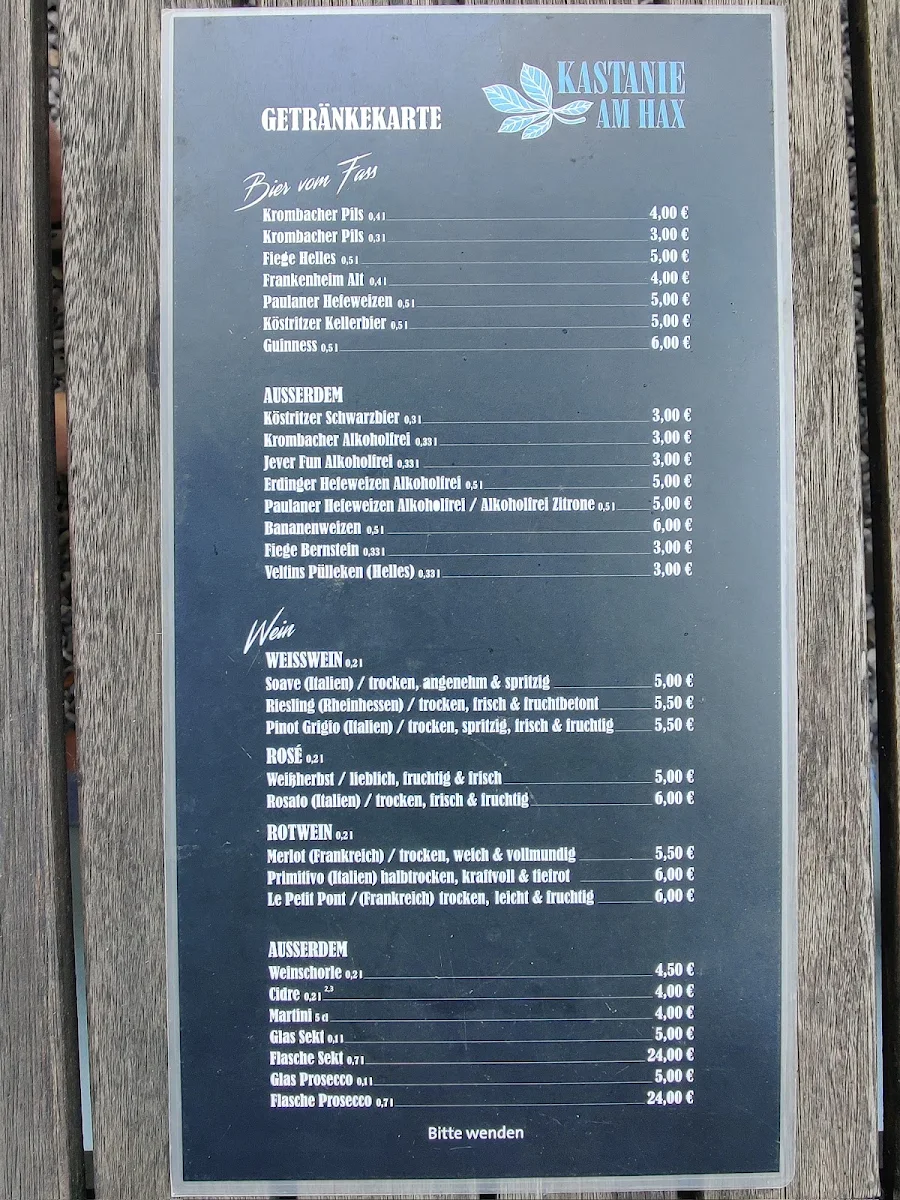 KASTANIE
AM HAX
GETRÄNKEKARTE
Bier vom Fass
Krombacher Pils 0,4 l 4,00 €
Krombacher Pils 0,3 l 3,00 €
Fiege Helles 0,5 l 5,00 €
Frankenheim Alt 0,4 l 4,00 €
Paulaner Hefeweizen 0,5 l 5,00 €
Köstritzer Kellerbier 0,5 l 5,00 €
Guinness 0,5 l 6,00 €
AUSSERDEM
Köstritzer Schwarzbier 0,3 l 3,00 €
Krombacher Alkoholfrei 0,33 l 3,00 €
Jever Fun Alkoholfrei 0,33 l 3,00 €
Erdinger Hefeweizen Alkoholfrei 0,5 l 5,00 €
Paulaner Hefeweizen Alkoholfrei / Alkoholfrei Zitrone 0,5 l 5,00 €
Bananenweizen 0,5 l 6,00 €
Fiege Bernstein 0,33 l 3,00 €
Veltins Pülleken (Helles) 0,33 l 3,00 €
Wein
WEISSWEIN 0,2 l
Soave (Italien) / trocken, angenehm & spritzig 5,00 €
Riesling (Rheinhessen) / trocken, frisch & fruchtbetont 5,50 €
Pinot Grigio (Italien) / trocken, spritzig, frisch & fruchtig 5,50 €
ROSÉ 0,2 l
Weißherbst / lieblich, fruchtig & frisch 5,00 €
Rosato (Italien) / trocken, frisch & fruchtig 6,00 €
ROTWEIN 0,2 l
Merlot (Frankreich) / trocken, weich & vollmundig 5,50 €
Primitivo (Italien) halbtrocken, kraftvoll & tiefrot 6,00 €
Le Petit Pont / (Frankreich) trocken, leicht & fruchtig 6,00 €
AUSSERDEM
Weinschorle 0,2 l 4,50 €
Cidre 0,2 l 2,3 4,00 €
Martini 5 cl 4,00 €
Glas Sekt 0,1 l 5,00 €
Flasche Sekt 0,7 l 24,00 €
Glas Prosecco 0,1 l 5,00 €
Flasche Prosecco 0,7 l 24,00 €
Bitte wenden